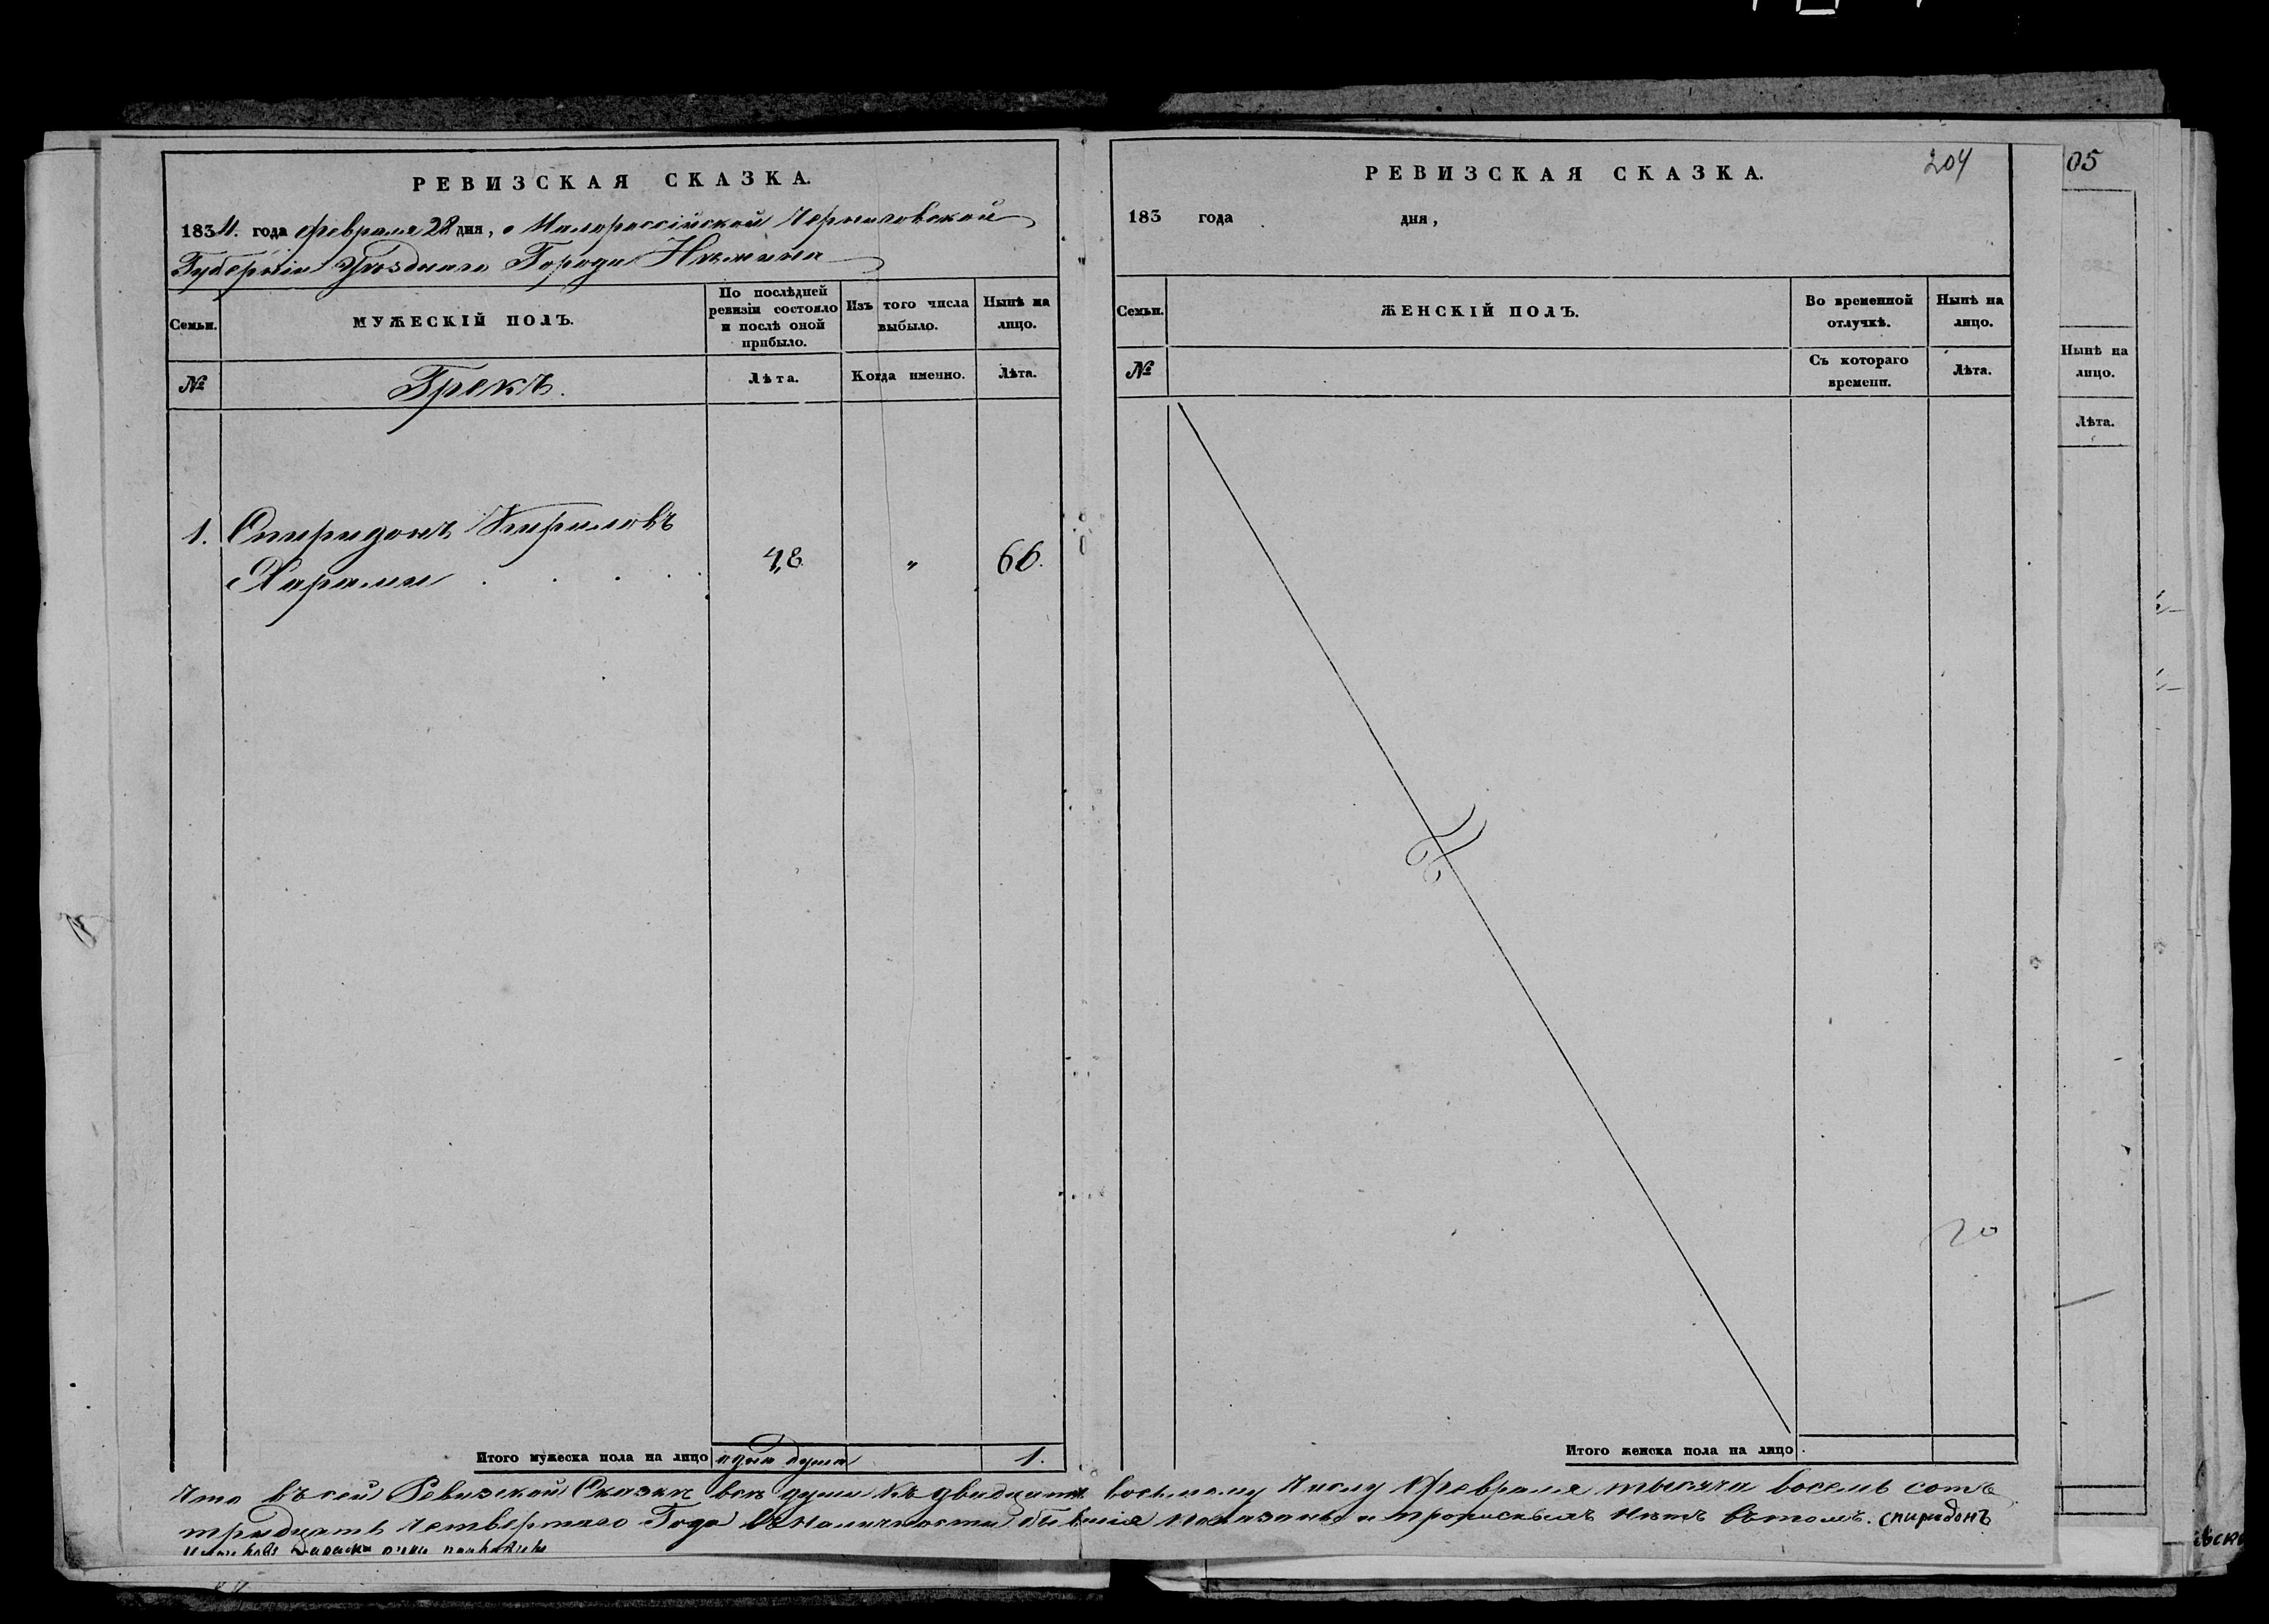 РЕВИЗСКАЯ СКАЗКА.
1834. года Февраля 28 дня, о Малороссійской Черниговской
Губерніи Уѣзднаго Города Нѣжина
Семьи.
МУЖЕСКІЙ ПОЛЪ.
По послѣдней ревизіи состояло и послѣ оной прибыло.
Изъ того числа выбыло.
Нынѣ на лицо.
№
Грекъ.
Лѣта.
Когда именно.
Лѣта.
1. Спиридонъ Кириловъ
Харами . . . . 48. " 66.
Итого мужеска пола на лицо одна душа 1.
РЕВИЗСКАЯ СКАЗКА.
204
183 года дня,
Семьи.
ЖЕНСКІЙ ПОЛЪ.
Во временной отлучкѣ.
Нынѣ на лицо.
№
Съ котораго времени.
Лѣта.
20
Итого женска пола на лицо
Что въ сей Ревизской Сказкѣ всѣ души къ двадцать восьмому Числу Февраля тысяча восемь сотъ
тридцать четвертаго Года въ наличности бывшіе показаны и прописныхъ нѣтъ въ томъ. спиридонъ
05
Нынѣ на лицо.
Лѣта.